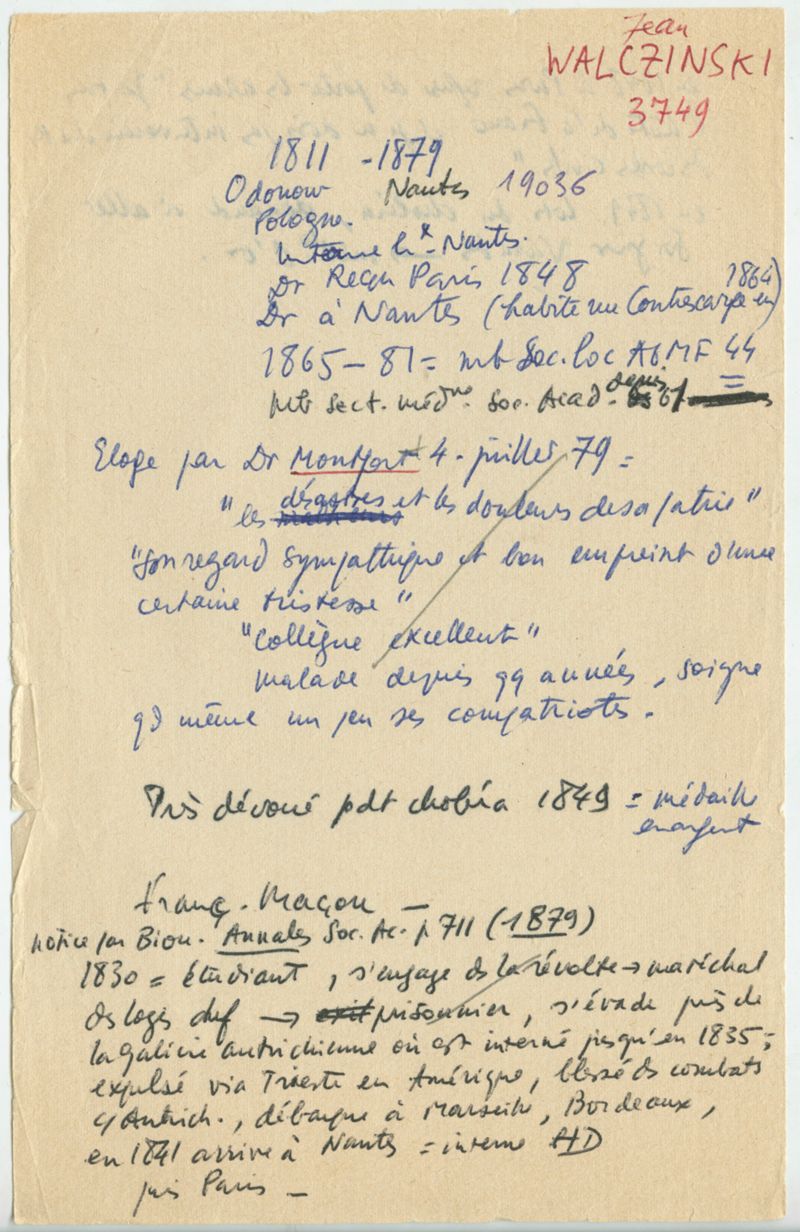 Jean
WALCZINSKI
3749
1811 - 1879
Odonow Nantes 19036
Pologne.
Interne hx Nantes.
Dr Reçu Paris 1848
Dr à Nantes (habite rue Contrescarpe en 1864)
1865 - 81 = mb Soc. loc AGMF 44
=
Mb Sect. médne Soc. Acad. depuis 61
Eloge par Dr Montfort 4 - juillet 79 =
"les désastres et les douleurs de sa patrie"
"son regard sympathique et bon empreint d'une
certaine tristesse"
"Collègue excellent"
malade depuis qq années, soigne
qd même un peu ses compatriotes.
Très dévoué pdt choléra 1849 = médaille
en argent
Franç. Maçon -
notice par Biou. Annales Soc. Ac. p 711 (1879)
1830 = étudiant, s'engage ds la révolte → maréchal
des logis chef → prisonnier, s'évade près de
la Galicie autrichienne où est interné jusqu'en 1835 =
expulsé via Trieste en Amérique, blessé ds combats
c/ Autrich., débarque à Marseille, Bordeaux,
en 1841 arrive à Nantes = interne HD
puis Paris -